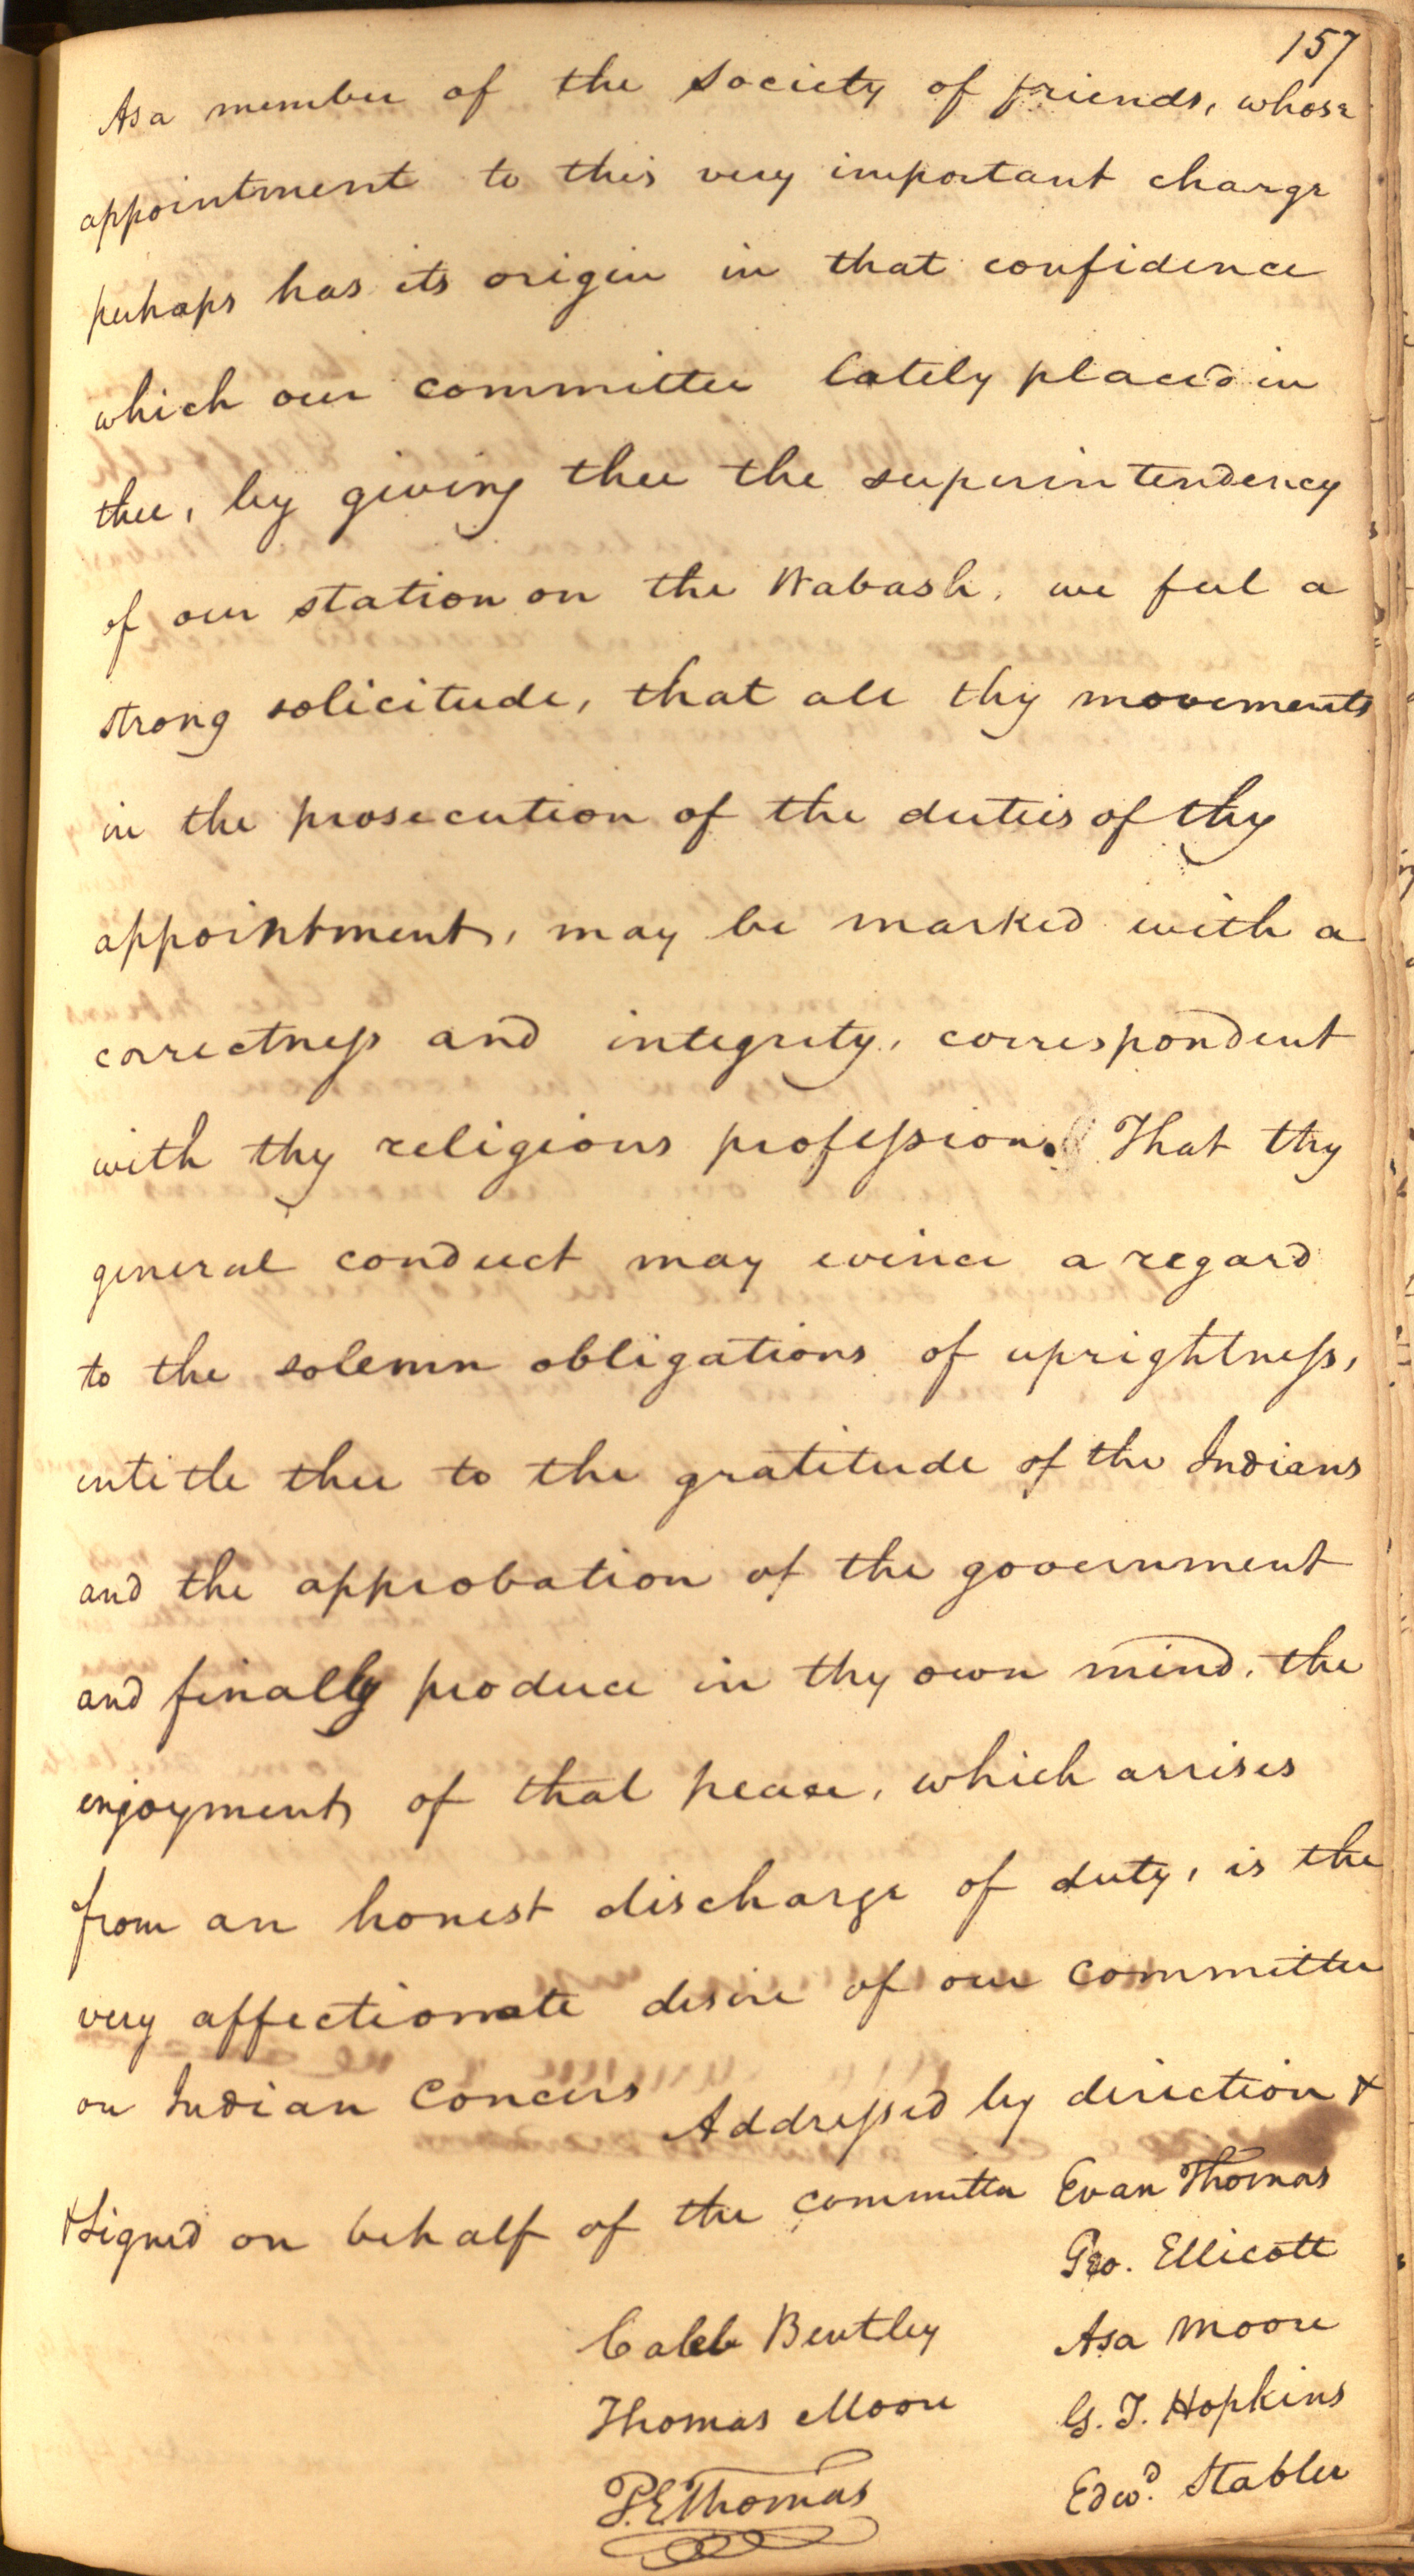 157
As a member of the Society of friends, whose
appointment to this very important charge
perhaps has its origin in that confidence
which our committee lately placed in
thee, by giving thee the superintendency
of our station on the Wabash, we feel a
strong solicitude, that all thy movements
in the prosecution of the duties of thy
appointment, may be marked with a
correctness and integrity, correspondent
with thy religious profession. That thy
general conduct may evince a regard
to the solemn obligations of uprightness,
entitle thee to the gratitude of the Indians
and the approbation of the government
and finally produce in thy own mind, the
enjoyment of that peace, which arrises
from an honest discharge of duty, is the
very affectionate desire of our committee
on Indian Concers Addressed by direction &
&Signed on behalf of the committee Evan Thomas
Geo. Ellicott
Caleb Bentley Asa Moore
Thomas Moore G. T. Hopkins
P. E. Thomas Edwd. Stabler